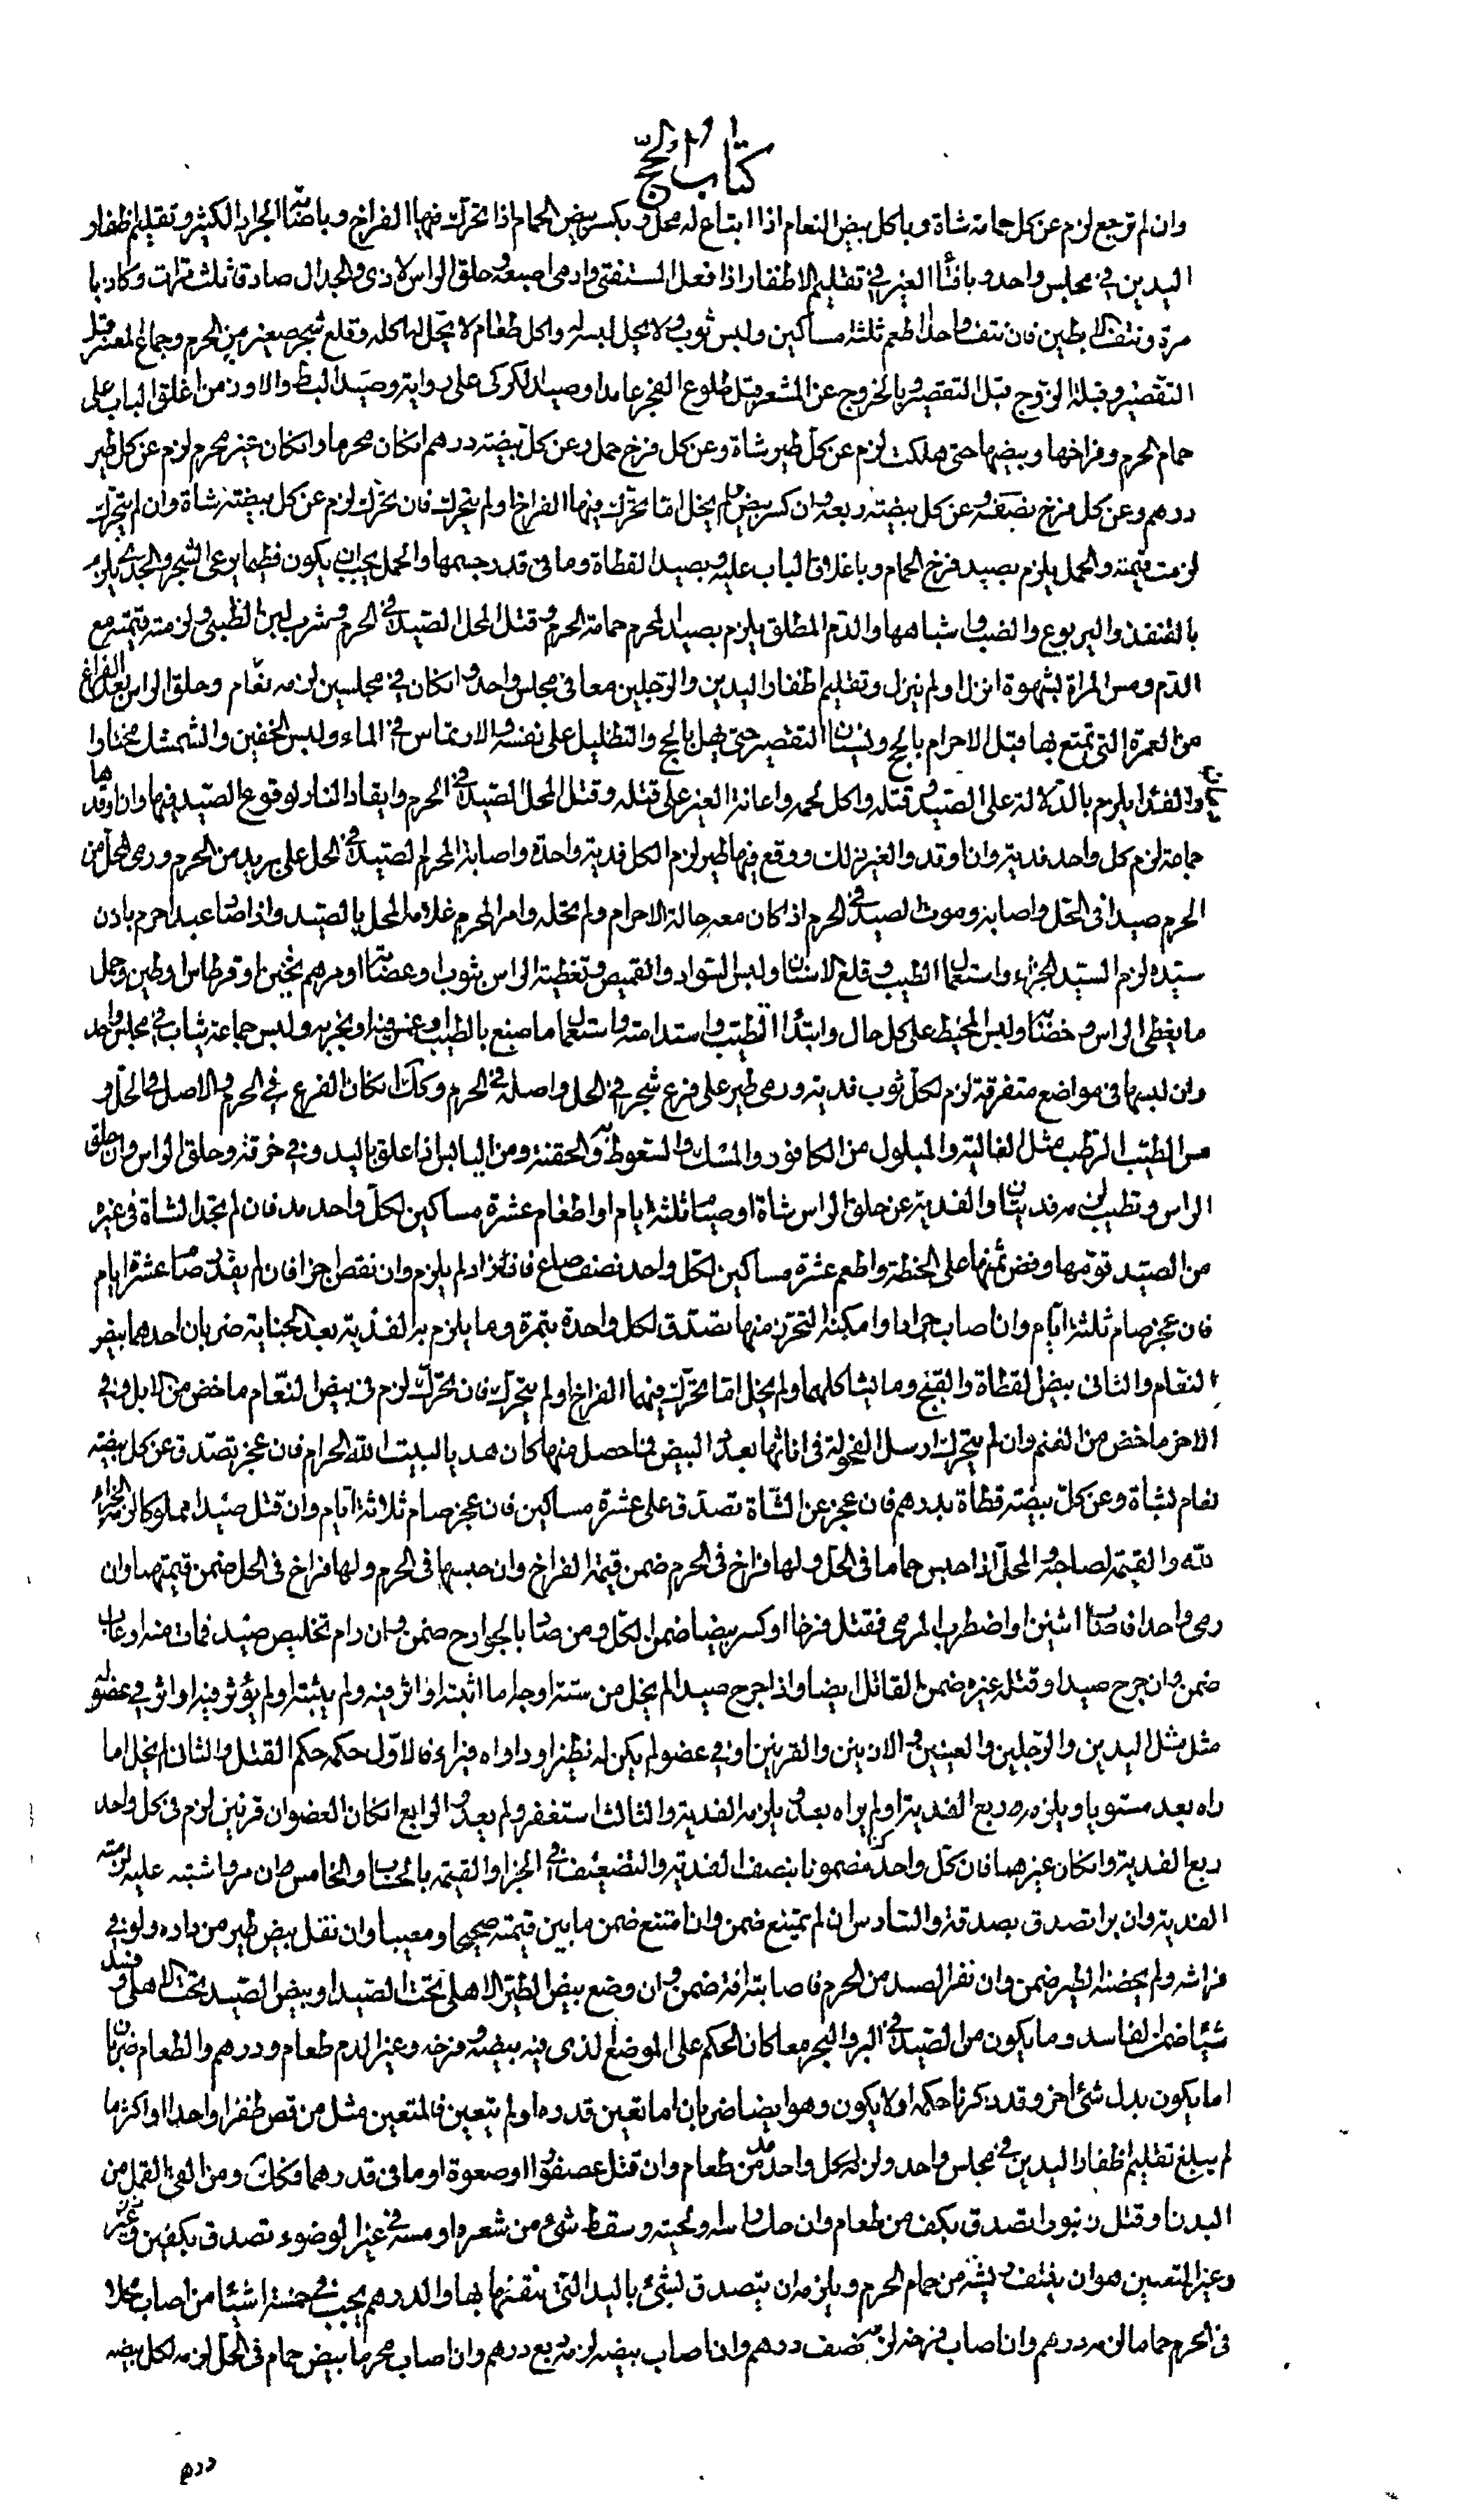 كتاب الحج
وان لم ترجع لزم عن كل حمامة شاة وباكل بيض النعام اذا ابتاع له محل وبكسر بيض الحمام اذا تحرك فيها الفراخ وباصابة الجراد الكثير وتقليم اظفار
اليدين في مجلس واحد وبافتاء الغير في تقليم الاظفار اذا فعل المستفتى وادمى اصبعه وحلق الراس لاذى والجدال صادقا ثلث مرات وكاذبا
مرة ونتف الابطين فان نتف واحدا اطعم ثلثة مساكين ولبس ثوب لا يحل لبسه واكل طعام لا يحل له اكله وقلع شجر صغير من الحرم وجماع المعتمر قبل
التقصير وقبلة الزوج قبل التقصير وبالخروج عن المشعر قبل طلوع الفجر عامدا وصيد الكركى على رواية وصيد البط والاوز من اغلق الباب على
حمام الحرم وفراخها وبيضها حتى هلكت لزم عن كل طير شاة وعن كل فرخ حمل وعن كل بيضة درهم انكان محرما وانكان غير محرم لزم عن كل طير
درهم وعن كل فرخ نصفه وعن كل بيضة ربعه وان كسر بيض لم يخل اما تحرك فيها الفراخ او لم يتحرك فان تحرك لزم عن كل بيضة شاة وان لم يتحرك
لزمت قيمته والحمل يلزم بصيد فرخ الحمام وباغلاق الباب عليه وبصيد القطاة وما في قدر جسمها والحمل يجب ان يكون فطيما يرعى الشجر والجدى يلزم
بالقنفذ واليربوع والضب واشباهها والدم المطلق يلزم بصيد المحرم حمامة الحرم وقتل المحل الصيد في الحرم وشرب لبن الظبى ولزمته قيمته مع
الدم ومس المراة بشهوة انزل او لم ينزل وتقليم اظفار اليدين والرجلين معا في مجلس واحد وانكان في مجلسين لزمه دم وحلق الراس بعد الفراغ
من العمرة التى تمتع بها قبل الاحرام بالحج ونسيان التقصير حتى يهل بالحج والتظليل على نفسه والارتماس في الماء ولبس الخفين والشمشك مختارا
والفداء يلزم بالدلالة على الصيد وقتله واكل لحمه واعانة الغير على قتله وقتل المحل الصيد في الحرم وايقاد النار لوقوع الصيد فيها وان اوقدها
جماعة لزم كل واحد فدية وان اوقدوا لغير ذلك ووقع فيها طير لزم الكل فدية واحدة واصابة المحرم الصيد في الحل على بريد من الحرم ورمى المحل من
الحرم صيدا في الحل واصابه وموت الصيد في الحرم اذا كان معه حالة الاحرام ولم يخله وامر المحرم غلامه المحل بالصيد واذا صاد عبد احرم باذن
سيده لزم السيد الجزاء واستعمال الطيب وقلع الاسنان ولبس السواد والقميص وتغطية الراس بثوب او عصابة او مرهم ثخين او قرطاس او طين وحمل
ما يغطى الراس وخضابا ولبس المخيط على كل حال وابتداء الطيب واستدامته واستعمال ما صنع بالطيب وغمس فيه او بخر به ولبس جماعة ثياب في مجلس واحد
وان لبسها في مواضع متفرقة لزم لكل ثوب فدية ورمى طير على فرع شجر في الحل واصله في الحرم وكذا انكان الفرع في الحرم والاصل في الحل و
مس الطيب الرطب مثل الغالية والمبلول من الكافور والمسك والسعوط به والحقنة ومن اليابس اذا علق باليد وفي خرقة وحلق الراس وان حلق
الراس وتطيب لزمه فديتان والفدية عن حلق الراس شاة او صيام ثلثة ايام او اطعام عشرة مساكين لكل واحد مد فان لم يجد الشاة في غيره
من الصيد قومها وفض ثمنها على الحنطة واطعم عشرة مساكين لكل واحد نصف صاع فان زاد لم يلزم وان نقص اجزا فان لم يقدر صام عشرة ايام
فان عجز صام ثلثة ايام وان اصاب جرادا وامكنه التحرز منها تصدق لكل واحدة بتمرة وما يلزم به الفدية بعد الجناية ضربان احدهما بيض
النعام والثانى بيض القطاة والقبج وما يشاكلهما ولم يخل اما تحرك فيهما الفراخ او لم يتحرك فان تحرك لزم في بيض النعام ماخض من الابل وفي
الاخر ماخض من الغنم وان لم يتحرك ارسل الفحولة في اناثها بعدد البيض فما حصل منها كان هديا لبيت الله الحرام فان عجز تصدق عن كل بيضة
نعام بشاة وعن كل بيضة قطاة بدرهم فان عجز عن الشاة تصدق على عشرة مساكين فان عجز صام ثلاثة ايام وان قتل صيدا مملوكا لزمه الجزاء
لله والقيمة لصاحبه والمحل اذا حبس حماما في الحل ولها فراخ في الحرم ضمن قيمة الفراخ وان حبسها في الحرم ولها فراخ في الحل ضمن قيمتهما وان
رمى واحدا فاصاب اثنين او اضطرب المرمى فقتل فرخا او كسر بيضا ضمن الكل ومن صاد بالجوارح ضمن وان رام تخليص صيد فمات منه او عاب
ضمن وان جرح صيدا وقتله غيره ضمن القاتل ايضا واذا جرح صيدا لم يخل من ستة اوجه اما اثبته او اثر فيه ولم يثبته او لم يؤثر فيه او اثر في عضو له
مثل مثل اليدين والرجلين والعينين والاذنين والقرنين او في عضو لم يكن له نظير او داواه فبراء فالاول حكمه حكم القتل والثانى لم يخل اما
راه بعد مستويا ويلزمه ربع الفدية او لم يراه بعد ويلزمه الفدية والثالث استغفر ولم يعد والرابع انكان العضوان قرنين لزم في كل واحد
ربع الفدية وانكان غيرهما فان كل واحد كذا مضمونا بنصف الفدية والتضعيف في الجزاء والقيمة بالحساب والخامس ان مر واشتبه عليه لزمته
الفدية وان برا تصدق بصدقة والسادس ان لم يمتنع ضمن وان امتنع ضمن ما بين قيمته صحيحا ومعيبا وان نقل بيض طير من داره ولو في
فراشه ولم يحضنه الطير ضمن وان نفر الصيد من الحرم فاصابته افة ضمن وان وضع بيض الطير الاهلى تحت الصيد او بيض الصيد تحت الاهلى وفسد
شيئا ضمن الفاسد وما يكون من الصيد في البر والبحر معا كان الحكم على الموضع الذى فيه بيضه وفرخه وغير الدم طعام ودرهم والطعام ضربان
اما يكون بدل شئ اخر وقد ذكرنا حكمه او لا يكون وهو ايضا ضربان اما تعين قدره او لم يتعين فالمتعين مثل من قص ظفرا واحدا او اكثر ما
لم يبلغ تقليم اظفار اليدين في مجلس واحد ولزمه لكل واحد مد من طعام وان قتل عصفورا او صعوة او ما في قدرهما فكذلك ومن القى القمل من
البدن او قتل زنبورا تصدق بكف من طعام وان مس راسه ولحيته وسقط شئ من شعره او مسه في غير الوضوء تصدق بكفين
وغير المتعين هو ان ينتف ريشة من حمام الحرم ويلزمه ان يتصدق بشئ باليد التى نتفها بها والدرهم يجب في خمسة اشياء من اصاب محلا
في الحرم حماما لزمه درهم وان اصاب فرخه لزمه نصف درهم وان اصاب بيضه لزمه ربع درهم وان اصاب محرما بيض حمام في الحل لزمه لكل بيضه
درهم